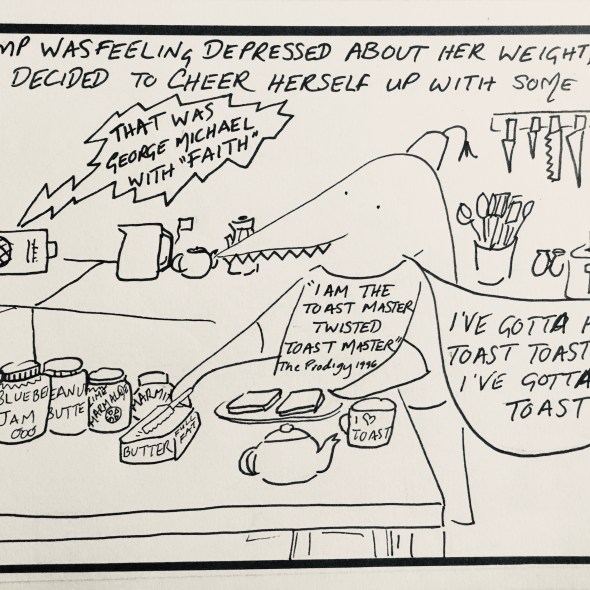 MP WAS FEELING DEPRESSED ABOUT HER WEIGHT,
DECIDED TO CHEER HERSELF UP WITH SOME
THAT WAS
GEORGE MICHAEL
WITH "FAITH"
"I AM THE
TOAST MASTER
TWISTED
TOAST MASTER"
The Prodigy 1996
I'VE GOTTA H
TOAST TOAST
I'VE GOTTA
TOAST
BLUEBE
JAM
EANU
BUTTE
LIME
MARMALADE
MARMI
BUTTER
FULL
FAT
I ♡
TOAST